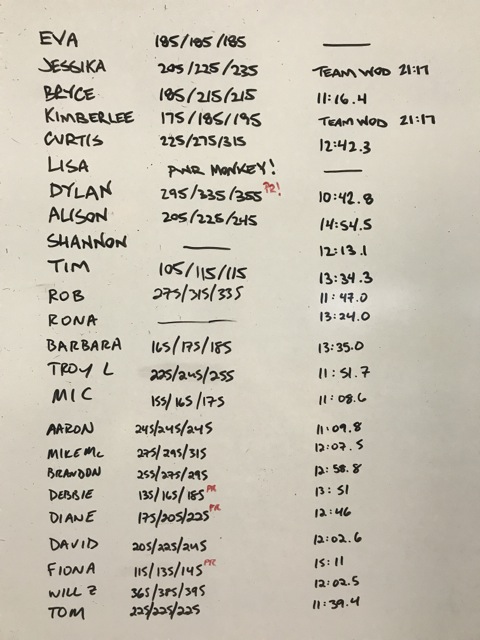 EVA 185/185/185 —
JESSIKA 205/225/235 TEAM WOD 21:17
BRYCE 185/215/215 11:16.4
KIMBERLEE 175/185/195 TEAM WOD 21:17
CURTIS 225/275/315 12:42.3
LISA PWR MONKEY! —
DYLAN 295/335/355 PR! 10:42.8
ALISON 205/225/245 14:54.5
SHANNON — 12:13.1
TIM 105/115/115 13:34.3
ROB 275/315/335 11:47.0
RONA — 13:24.0
BARBARA 165/175/185 13:35.0
TROY L 225/245/255 11:51.7
MIC 155/165/175 11:08.6
AARON 245/245/245 11:09.8
MIKE Mc 275/295/315 12:07.5
BRANDON 255/275/295 12:58.8
DEBBIE 135/165/185 PR 13:51
DIANE 175/205/225 PR 12:46
DAVID 205/225/245 12:02.6
FIONA 115/135/145 PR 15:11
WILL Z 365/385/395 12:02.5
TOM 225/225/225 11:39.4